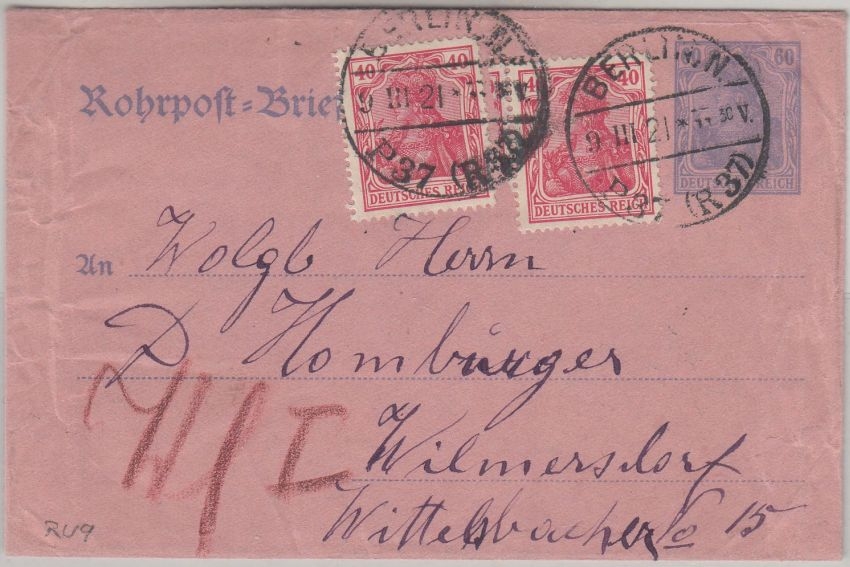 BERLIN N. 60
40 40 40
9 III 21 * V. BERLIN N.
Rohrpost=Brief 9 III 21 * 11 30 V.
P37 (R37) P37 (R37)
DEUTSCHES REICH DEUTSCHES REICH DEUTSCHES REICH
An Wolgb Herrn
D Homburger
W/I Wilmersdorf
RU9 Wittelsbacher 15